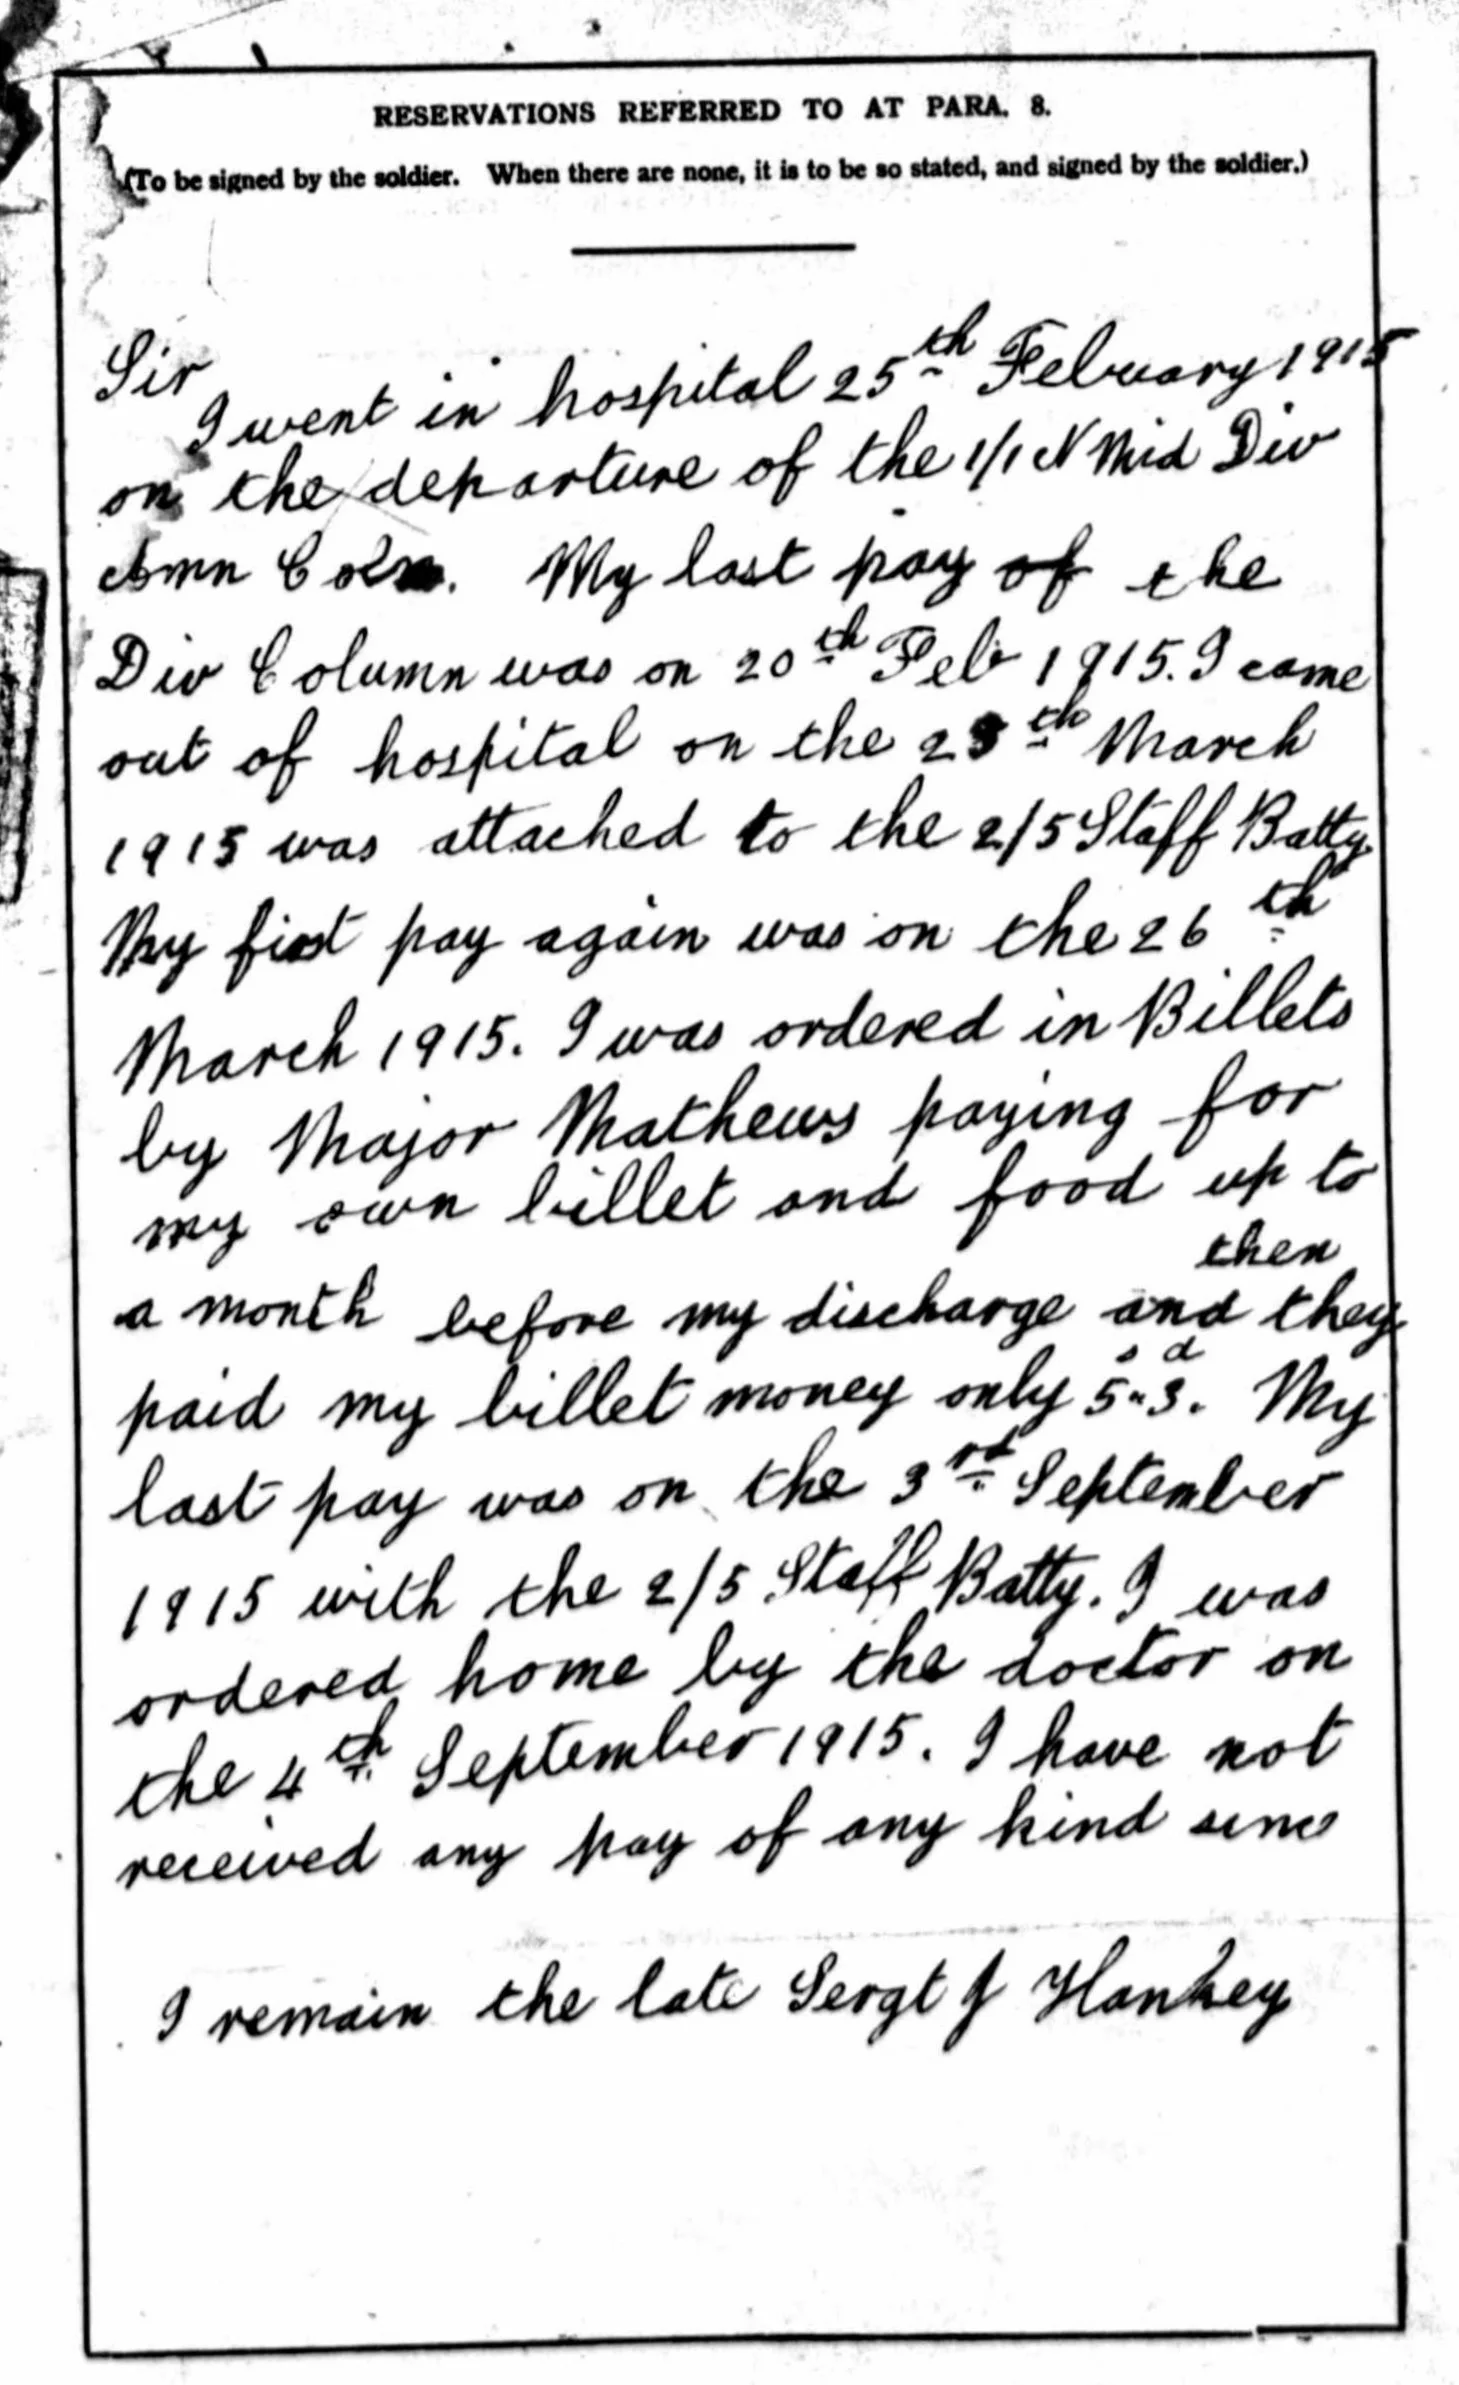 RESERVATIONS REFERRED TO AT PARA. 8.
(To be signed by the soldier. When there are none, it is to be so stated, and signed by the soldier.)
Sir
I went in hospital 25th February 1915
on the departure of the 1/1 N Mid Div
Amn Coln. My last pay of the
Div Column was on 20th Feb 1915. I came
out of hospital on the th March
1915 was attached to the 2/5 Staff Batty
My first pay again was on the 26th
March 1915. I was ordered in Billets
by Major Mathews paying for
my own billet and food up to
then
a month before my discharge and they
s d
paid my billet money only 5"3. My
last pay was on the 3rd September
1915 with the 2/5 Staff Batty. I was
ordered home by the doctor on
the 4th September 1915. I have not
received any pay of any kind since
I remain the late Sergt J Hankey